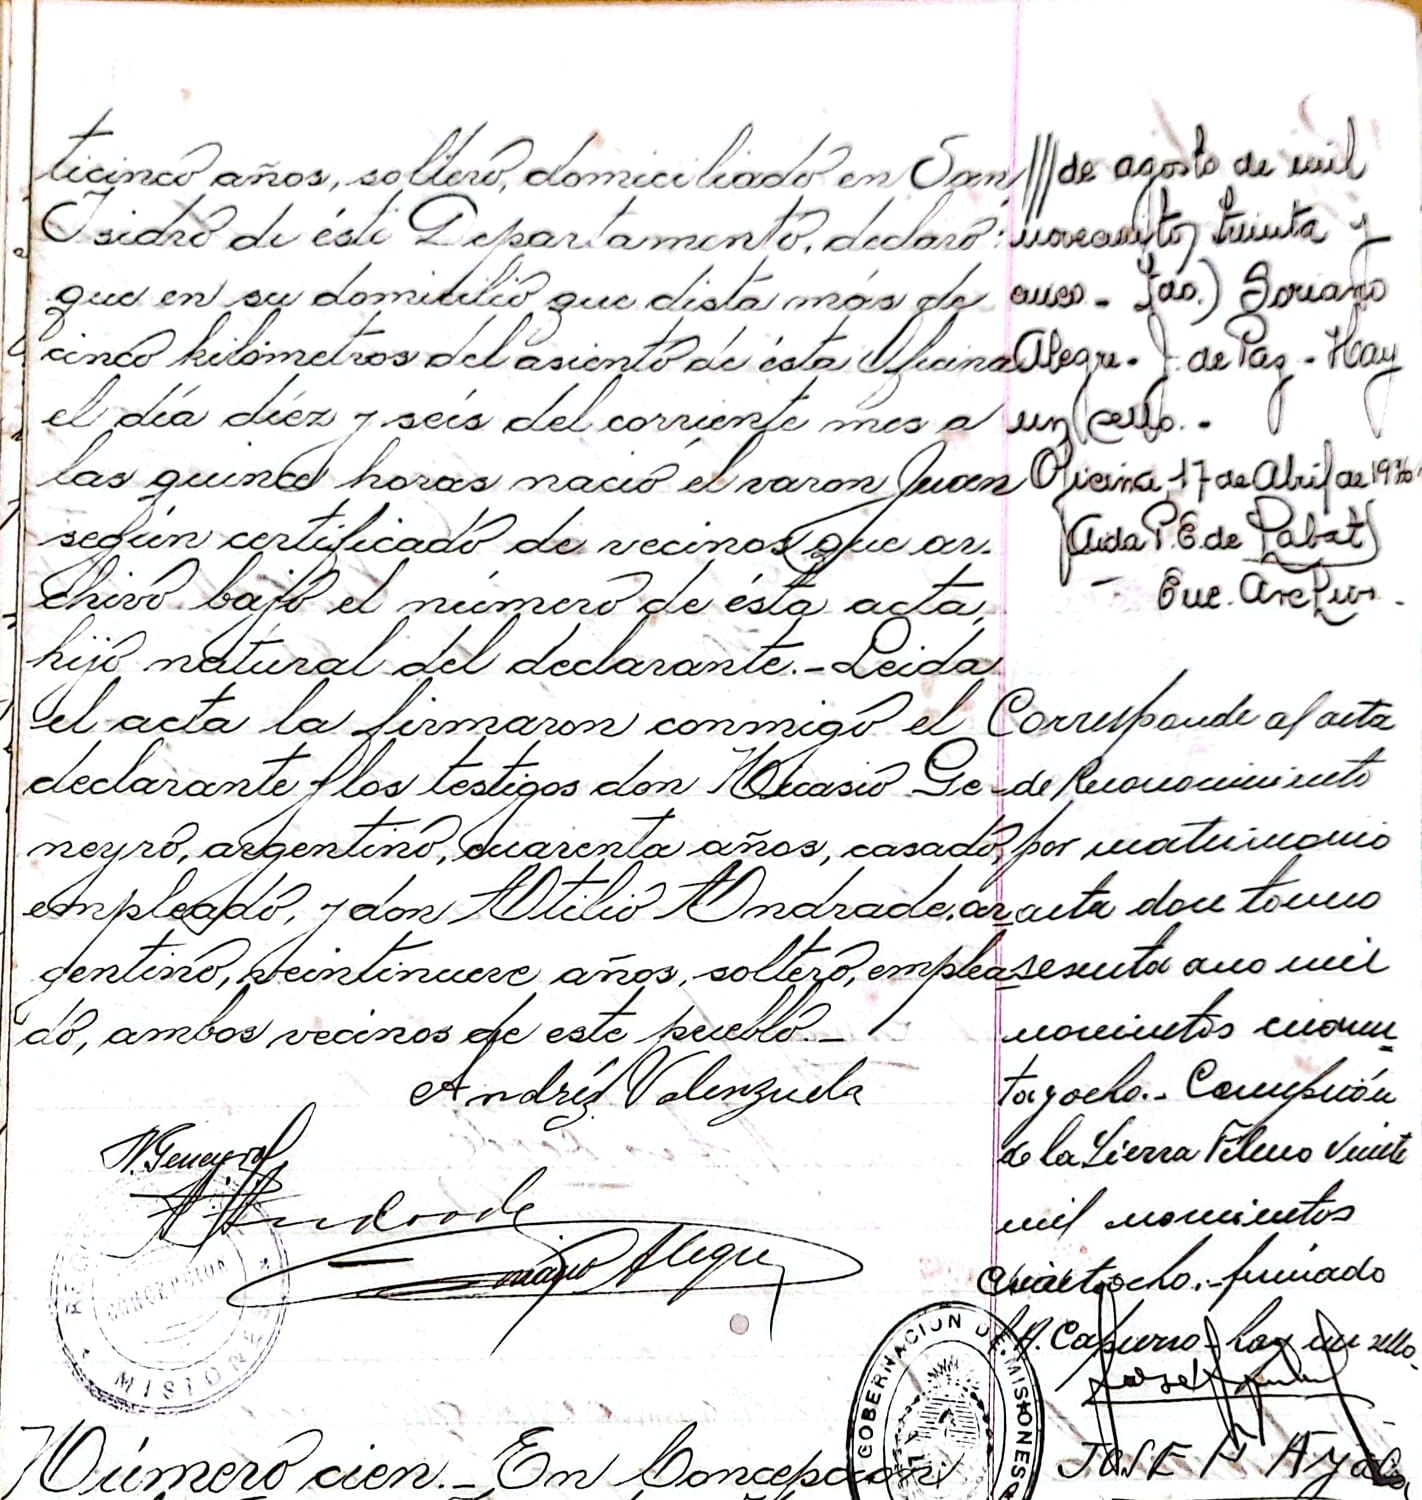 ticinco años, soltero, domiciliado en San
Isidro de ésti Departamento, declaró:
que en su domicilio que dista más de
cinco kilómetros del asiento de ésta Oficina
el día diez y seis del corriente mes a
las quince horas nació el varon Juan
según certificado de vecinos que ar-
chivo bajo el número de ésta acta,
hijo natural del declarante.- Leida
el acta la firmaron conmigo el
declarante y los testigos don Nicasio Ge-
neyro, argentino, cuarenta años, casado,
empleado, y don Atilio Andrade, ar-
gentino, veintinueve años, soltero, emplea-
do, ambos vecinos de este pueblo.-
Andrés Valenzuela
N. Geneyro
A. Andrade
Soriano Alegre
CONCEPCION
MISIONES
Número cien.- En Concepción
/// de agosto de mil
novecientos treinta y
cinco - Fdo.) Soriano
Alegre - J. de Paz - Hay
un sello. -
Oficina, 17 de Abril de 1936
(Aida P. E. de Pabat)
Enc. Archivo -
Corresponde al acta
de Reconocimiento
por matrimonio
acta doce tomo
sesenta ano mil
novecientos cuaren-
ta y ocho.- Concepción
de la Sierra Febrero veinte
mil novecientos
ocho.- firmado
A. Capurro - hay un sello
GOBERNACION DE MISIONES
JOSE N AYALA